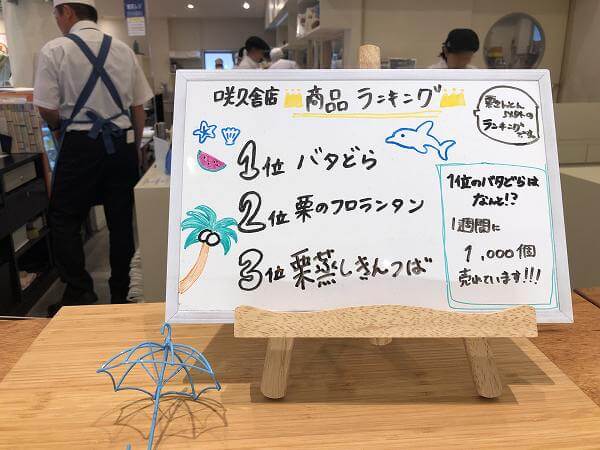 咲久舎店 商品ランキング
栗きんとん
以外の
ランキング
です。
1位 バタどら
2位 栗のフロランタン
3位 栗蒸しきんつば
1位のバタどらは
なんと!?
1週間に
1,000個
売れています!!!